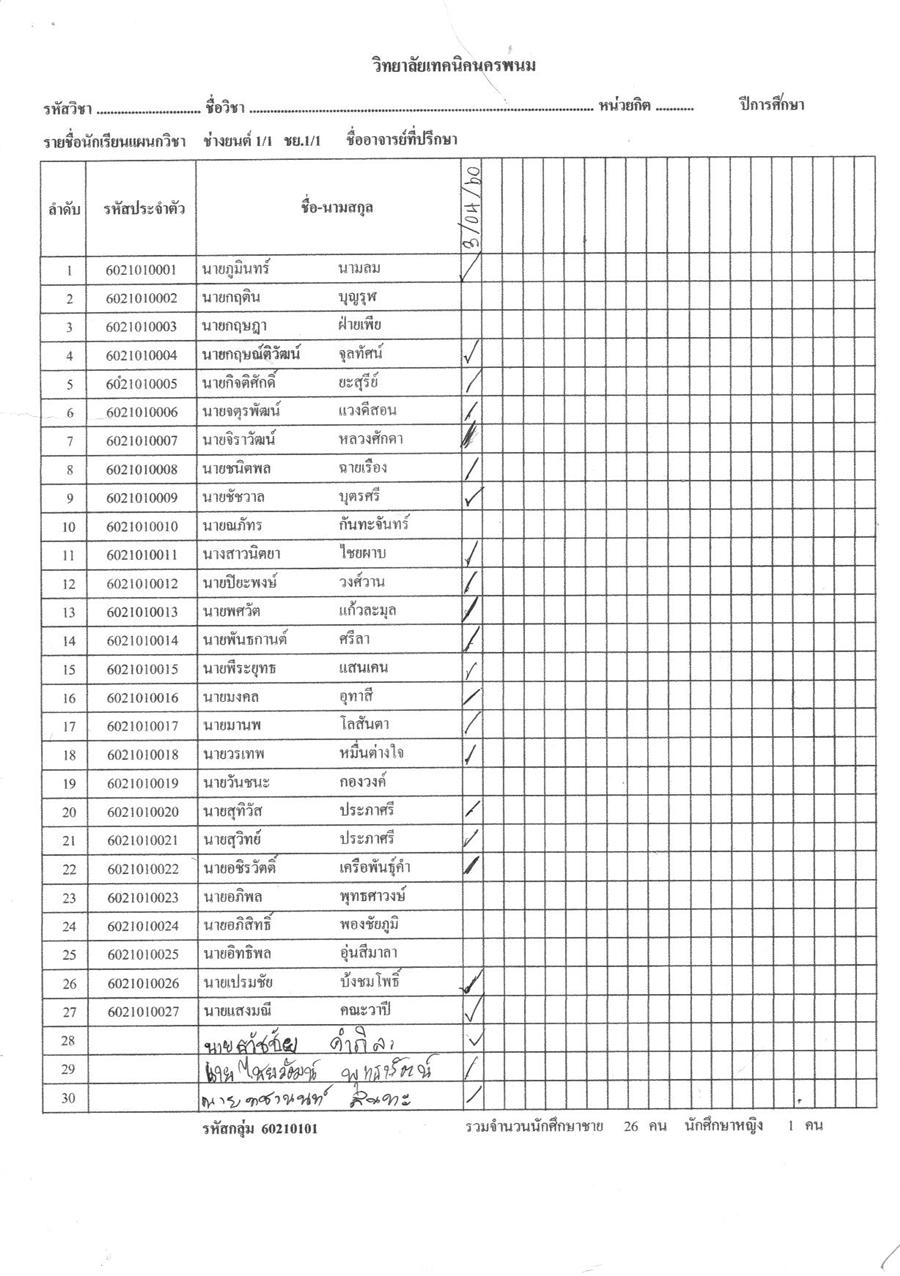 วิทยาลัยเทคนิคนครพนม
รหัสวิชา .............................. ชื่อวิชา .......................................................................................... หน่วยกิต ........... ปีการศึกษา
รายชื่อนักเรียนแผนกวิชา ช่างยนต์ 1/1 ชย.1/1 ชื่ออาจารย์ที่ปรึกษา
ลำดับ รหัสประจำตัว ชื่อ-นามสกุล
1 6021010001 นายภูมินทร์ นามลม
2 6021010002 นายกฤติน บุญรุฬ
3 6021010003 นายกฤษฎา ฝ่ายเพีย
4 6021010004 นายกฤษณ์ติวัฒน์ จุลทัศน์
5 6021010005 นายกิจติศักดิ์ ยะสุรีย์
6 6021010006 นายจตุรพัฒน์ แวงดีสอน
7 6021010007 นายจิราวัฒน์ หลวงศักดา
8 6021010008 นายชนิตพล ฉายเรือง
9 6021010009 นายชัชวาล บุตรศรี
10 6021010010 นายณภัทร กันทะจันทร์
11 6021010011 นางสาวนิตยา ไชยผาบ
12 6021010012 นายปิยะพงษ์ วงศ์วาน
13 6021010013 นายพศวัต แก้วละมุล
14 6021010014 นายพันธกานต์ ศรีลา
15 6021010015 นายพีระยุทธ แสนเคน
16 6021010016 นายมงคล อุทาสี
17 6021010017 นายมานพ โลสันตา
18 6021010018 นายวรเทพ หมื่นต่างใจ
19 6021010019 นายวันชนะ กองวงค์
20 6021010020 นายสุทิวัส ประภาศรี
21 6021010021 นายสุวิทย์ ประภาศรี
22 6021010022 นายอชิรวัตติ์ เครือพันธุ์คำ
23 6021010023 นายอภิพล พุทธศาวงษ์
24 6021010024 นายอภิสิทธิ์ พองชัยภูมิ
25 6021010025 นายอิทธิพล อุ่นสีมาลา
26 6021010026 นายเปรมชัย บ้งชมโพธิ์
27 6021010027 นายแสงมณี คณะวาปี
28 นาย
29 นาย
30 นาย
รหัสกลุ่ม 60210101 รวมจำนวนนักศึกษาชาย 26 คน นักศึกษาหญิง 1 คน